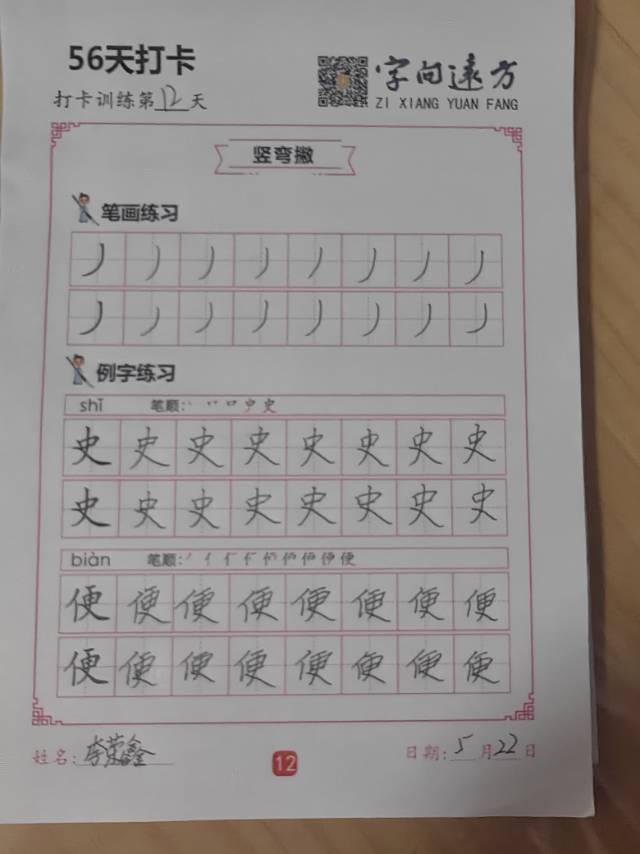 56天打卡
字向远方
打卡训练第12天
ZI XIANG YUAN FANG
竖弯撇
笔画练习
丿丿丿丿丿丿丿丿
丿丿丿丿丿丿丿丿
例字练习
shǐ 笔顺:
史史史史史史史史
史史史史史史史史
biàn 笔顺:
便便便便便便便便
便便便便便便便便
姓名:李荣鑫
12
日期:5月22日